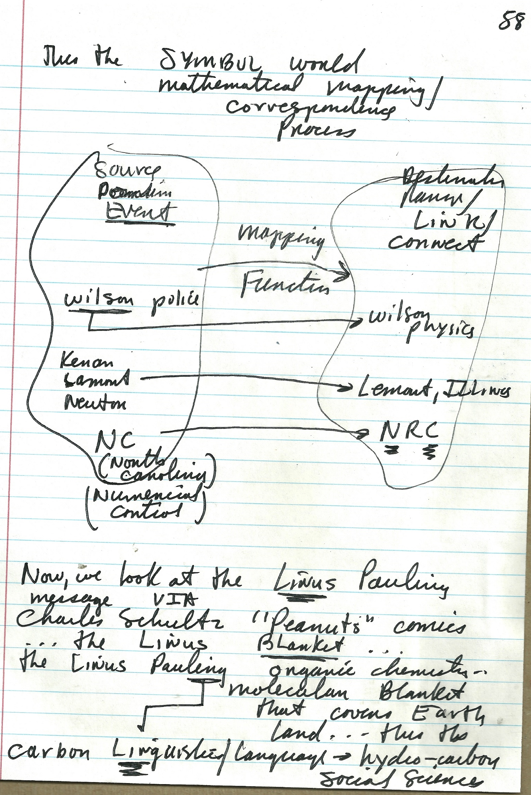 58
Thus the SYMBOL world
mathematical mapping/
correspondence
Process
Source
Domain
EVENT
Destination
Range/
LINK/
connect
mapping
Function
wilson police
wilson
physics
Kenan
Lamont
Newton
Lemont, Illinois
NC
(North
Carolina)
(Numerical
Control)
NRC
Now, we look at the Linus Pauling
message VIA
Charles Schultz "Peanuts" comics
... the Linus Blanket ...
the Linus Pauling organic chemistry...
molecular Blanket
that covers Earth
land... thus the
carbon Linguistics/Language → hydro-carbon
Social Sciences